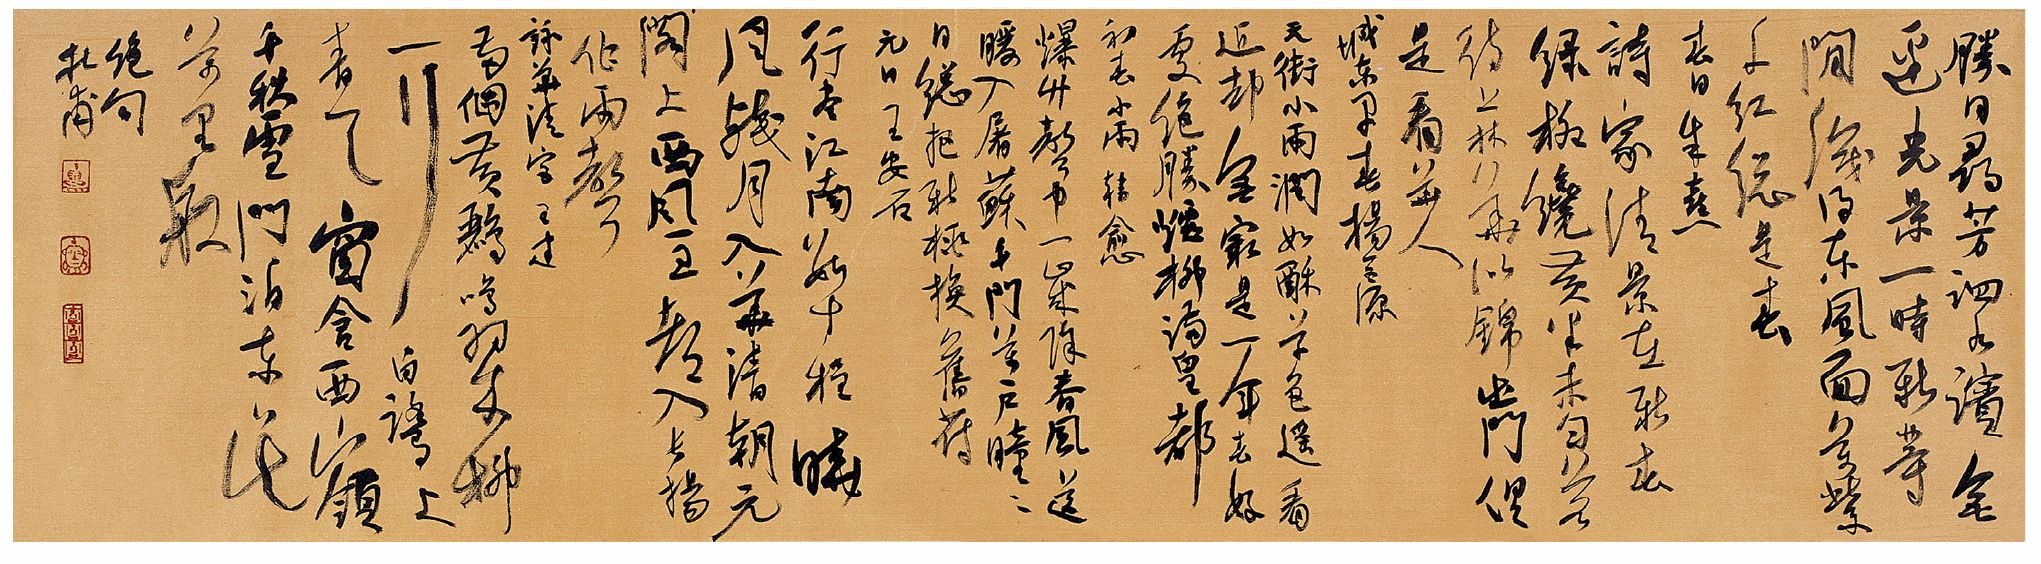 勝日尋芳泗水濱無
邊光景一時新等
閒識得東風面萬紫
千紅總是春
春日朱熹
詩家清景在新春
綠柳纔黃半未勻若
待上林花似錦出門俱
是看花人
城東早春楊巨源
天街小雨潤如酥草色遙看
近却無最是一年春好
處絕勝煙柳滿皇都
初春小雨韓愈
爆竹聲中一歲除春風送
暖入屠蘇千門萬戶曈〻
日總把新桃換舊符
元日王安石
行盡江南數十程曉
風殘月入華清朝元
閣上西風急都入長楊
作雨聲
詠華清宮王建
兩個黃鸝鳴翠柳
一行白鷺上
青天窗含西嶺
千秋雪門泊東吳
萬里船
絕句
杜甫